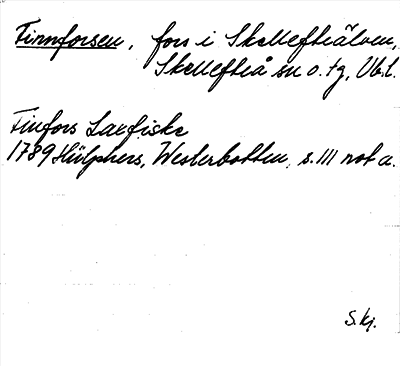 Finnforsen, fors i Skellefteälven,
Skellefteå sn o. tg, Vb.l.
Finfors Laxfiske
1789 Hülphers, Westerbotten, s. 111 not a.
S.Kj.